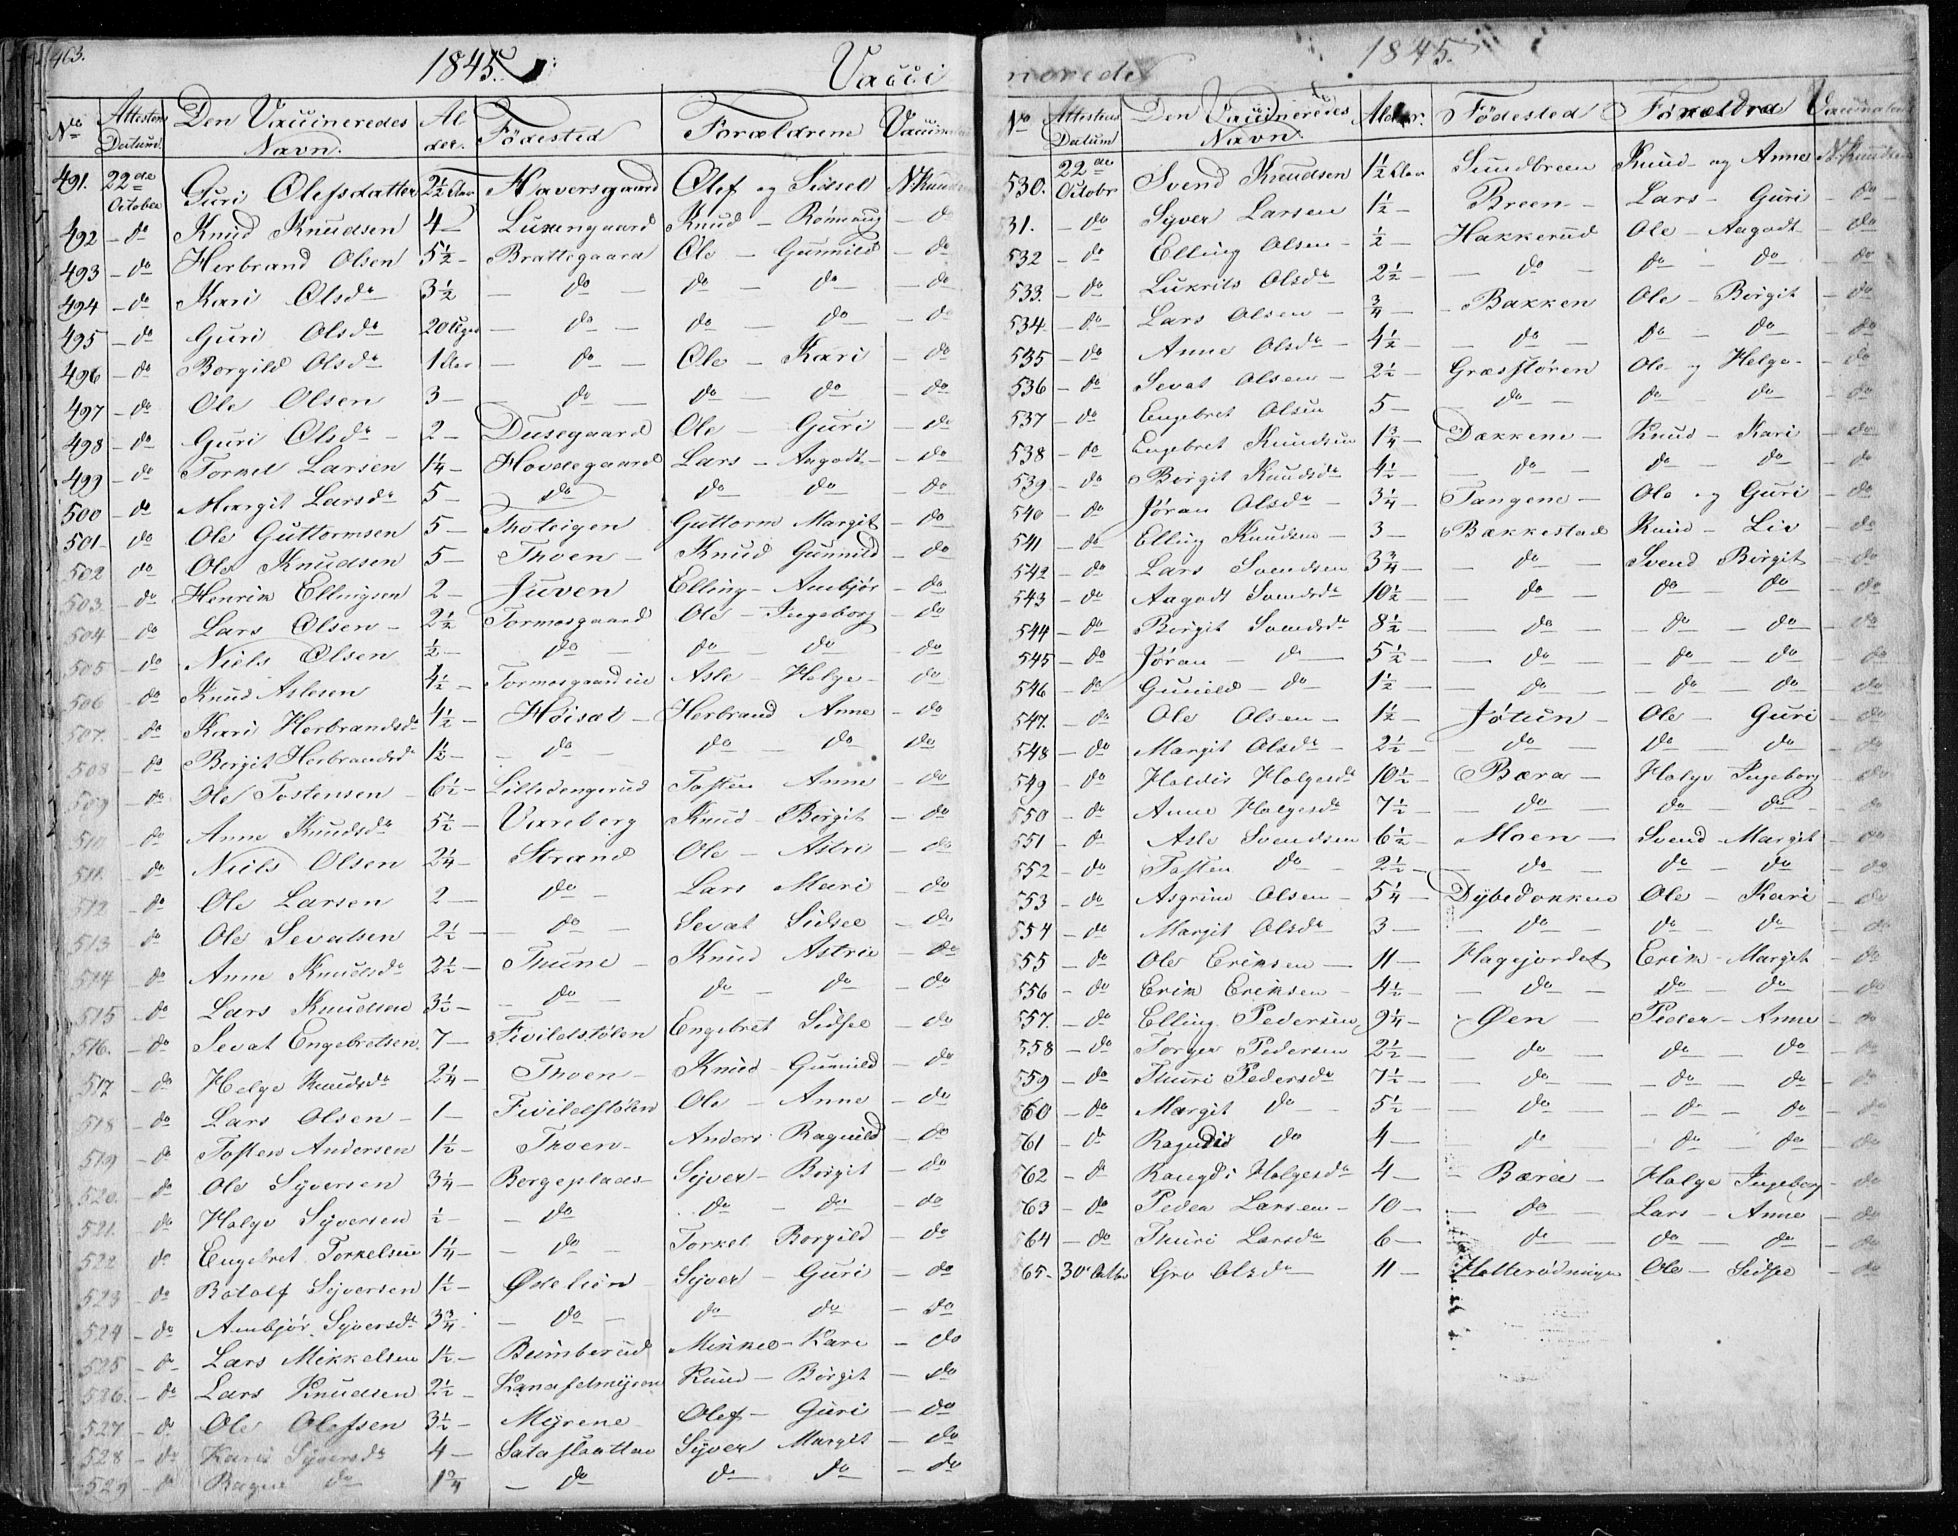 463.
1845. Vacci
No Attestens Datum. Den Vaccineredes Navn. Alder. Födested Forældrene Vaccinateur
491. 22de October Guri Olefsdatter 2½ Aar Haversgaard Olef og Sidsel N. Knudsen
492 – do Knud Knudsen 4 – Luxengaard Knud – Römaug – do
493 – do Herbrand Olsen 5½ – Brattegaard Ole – Gunnild – do
494 – do Kari Olsda 3½ – do – do – do – do
495 – do Guri Olsda 20 Uger – do – do – do – do
496 – do Borgild Olsda 1 Aar – do – Ole – Kari – do
497 – do Ole Olsen 3 – – do – do – do – do
498 – do Guri Olsda – 2 – Dusegaard Ole – Guri – do
499 – do Torkel Larsen 1¼ – Hovdegaard Lars – Aagodt – do
500 – do Margit Larsda 5 – do do do – do
501 – do Ole Guttormsen 5 – Tholeigen Guttorm Margit – do
502 do Ole Knudsen 5 – Thoen – Knud Gunnild – do
503. – do Henrik Ellingsen 2 – Juven Elling – Ambjør – do
504 – do Lars Olsen – 2½ Tormosgaard Ole – Ingeborg – do
505 – do Niels Olsen ½ – do – do – do – do
506 – do Knud Aslesen 4½ – Tormosgaardeie Asle – Helge – do
507. – do Kari Herbrandsda 4½ – Höisæt – Herbrand Anne – do
508 – do Birgit Herbrandsd 1½ – – do – do – do do
509 – do Ole Tostensen – 6½ – Lilledengerud Tosten Anne – do
510 – do Anne Knudsda 5½ – Vareberg Knud – Birgit – do
511. – do Niels Olsen 2¼ – Strand Ole – Astri – do
512 – do Ole Larsen 2 – do – Lars Mari – do
513 – do Ole Sevatsen 2½ – – do – Sevat Sidsel – do
514 – do Anne Knudsda 2½ – Thune – Knud Astrie – do
515 – do Lars Knudsen 3½ – – do – do – do – do
516. – do Sevat Engebretsen. 7 – Fivildstölen Engebret Sidsel – do
517 – do Helge Knudsda 2¼ – Thoen – Knud – Gunnild – do
518 – do Lars Olsen – 1 – Fivildstölen Ole – Anne – do
519 – do Tosten Andersen 1½ – Thoen – Anders Ragnild – do
520. – do Ole Syversen 3¼ – Borgeplads – Syver – Birgit – do
521. do Helge Syversen ½ – – do do – do – do
522 do Engebret Torkelsen 1¼ – – do – Torkel Borgild – do
523 – do Botolf Syversen 1½ – Ödelien – Syver – Guri – do
524 – do Ambjør Syversda 3¾ – do – do do – do
525 – do Lars Mikkelsen 1½ – Bumberud Mikkel – Kari – do
526. – do Lars Knudsen 2½ – Knud – Birgit – do
527 – do Ole Olefsen 3½ – Myrene Olef – Guri – do
528 – do Kari Syversda 4 – Sataslaatten Syver Margit – do
529 – do Ragne do 1¾ – do do do – do
nerede 1845.
No Attestens Datum Den Vaccineredes Navn Alder. Födested Forældre Vaccinateur
530. 22de Octobr Svend Knudsen 1½ Aar Sundbreen Knud – og Anne N. Knudsen
31. – do Syver Larsen 1½ – Breen – Lars – Guri – do
532 – do Elling Olsen – ½ – Hakkerud Ole – Aagodt – do
533. – do Lukrits Olsda 2½ – – do – do – do – do
534 – do Lars Olsen – ¾ – Bakken Ole – Birgit – do
535 – do Anne Olsda – 4½ – – do – do – do – do
536 – do Sevat Olsen – 2½ – Græsstören Ole og Helge – do
537 – do Engebret Olsen 5 – do – do – do – do
538 – do Engebret Knudsen 1¾ – Dækkene – Knud – Kari – do
539 – do Birgit Knudsda 4½ – – do – do – do – do
540 – do Jöran Olsda – 3¼ – Tangene – Ole og Guri – do
541 – do Elling Knudsen – 3 – Bækkestad Knud – Liv – do
542 – do Lars Svendsen 3¾ – – do – Svend Birgit – do
543 – do Aagodt Svendsda 10½ – – do – do do – do
544 – do Birgit Svendsda 8½ – – do – – do – do – do
545 – do Jöran – do – 5½ – – do – do – do – do
546 – do Gunild – do – 1½ – – do – – do – do – do
547. – do Ole Olsen – 1½ – Jötun – Ole – Guri – do
548 – do Margit Olsda – 2½ – do – do do – do
549 – do Haldis Holgesda 10½ – Bæra – Holge Ingeborg – do
550 – do Anne Holgesda 7½ – – do – do – do – do
551 – do Asle Svendsen 6½ – Moen – Svend – Margit – do
552 – do Tosten do – 2½ – – do – do – do – do
553 – do Asgrim Olsen – 5¼ – Dybedokken Ole – Kari – do
554 – do Margit Olsda – 3 – – do – do – do – do
555 – do Ole Eriksen – 11 – Hagejordet Erik – Margit – do
556 – do Erik Eriksen – 4½ – – do – do – do – do
557. – do Elling Pedersen 9¼ – Öen – Peder – Anne – do
558 – do Torger Pedersen 2½ – – do – do – do – do
559 – do Thuri Pedersda 7½ – – do – – do – do – do
560 – do Margit do – 5½ – do – do – do – do
561 – do do 4 – do – do – do – do
562 – do Holgesda 4 – – Bæra – Holge Ingeborg – do
563 – do Peder Larsen – 10 – – do – Lars – Anne – do
564 – do Thuri Larsda 6 – do – do – do – do
565 – 30 Octbr Gro Olsda 11 – Ole – Sidsel – do